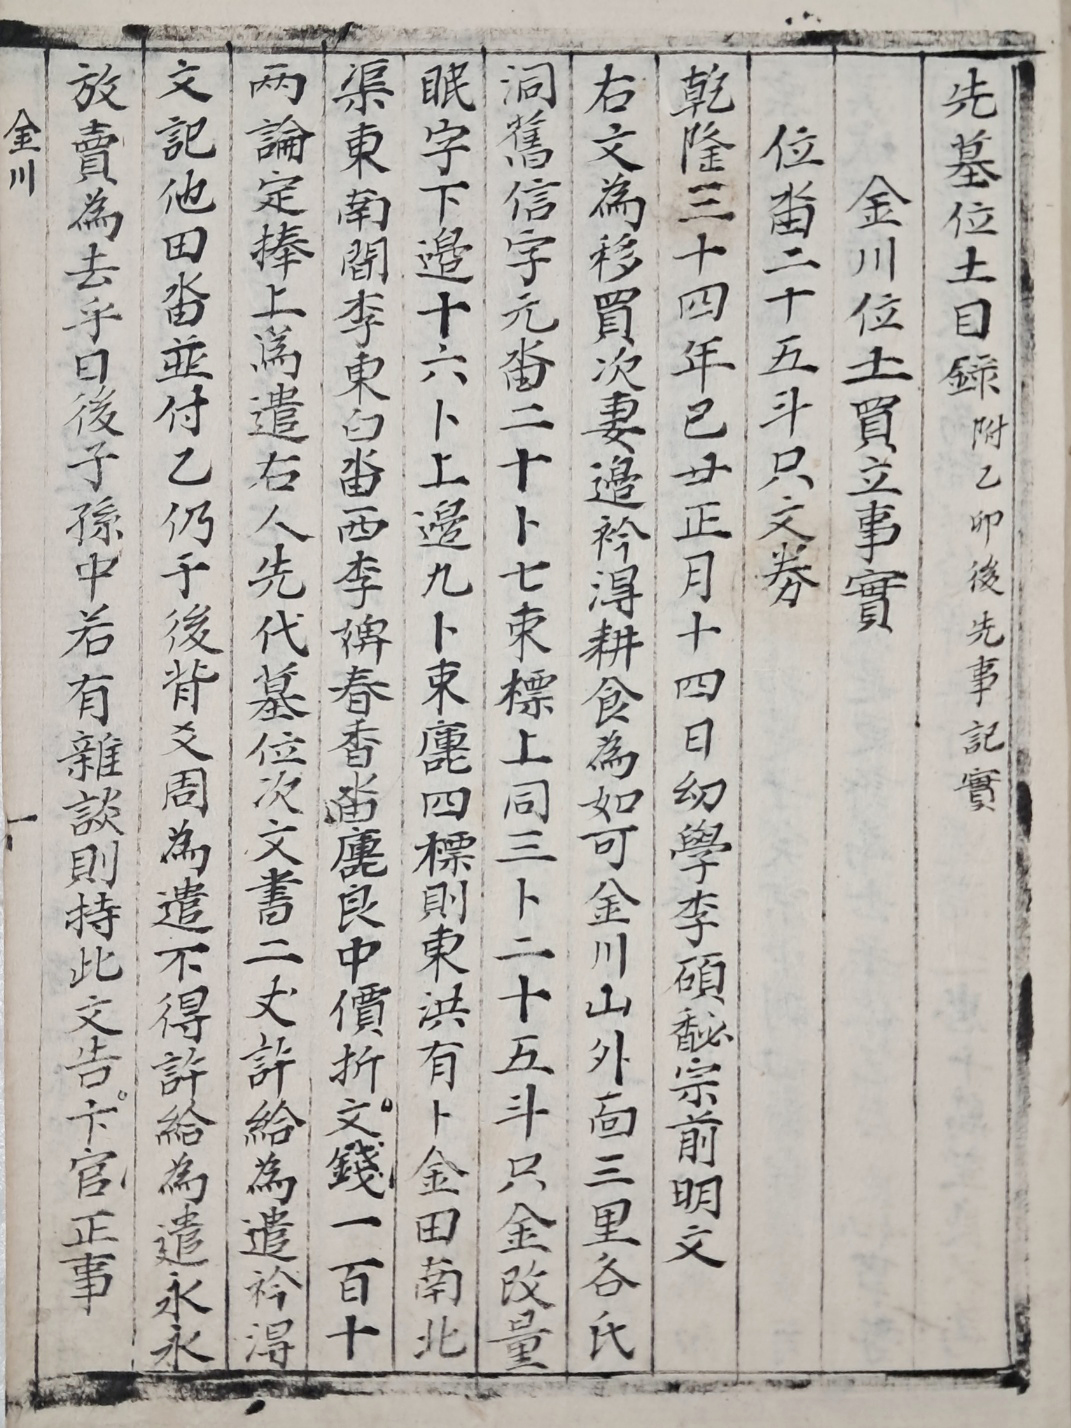 先墓位土目録 附乙卯後先事記實
金川位土買立事實
位畓二十五斗只文券
乾隆三十四年己丑正月十四日幼學李碩馝宗前明文
右文為移買次妻邉衿得耕食為如可金川山外面三里各氏
洞舊信字元畓二十卜七束標上同三卜二十五斗只金改量
眠字下邉十六卜上邉九卜束庬四標則東洪有卜金田南北
渠東南間李東臼畓西李碑春香畓庬良中價折文錢一百十
两論定捧上為遣右人先代墓位次文書二丈許給為遣衿得
文記他田畓並付乙仍于後背爻周為遣不得許給為遣永永
放賣為去乎日後子孫中若有雜談則持此文告卞官正事
金川
一